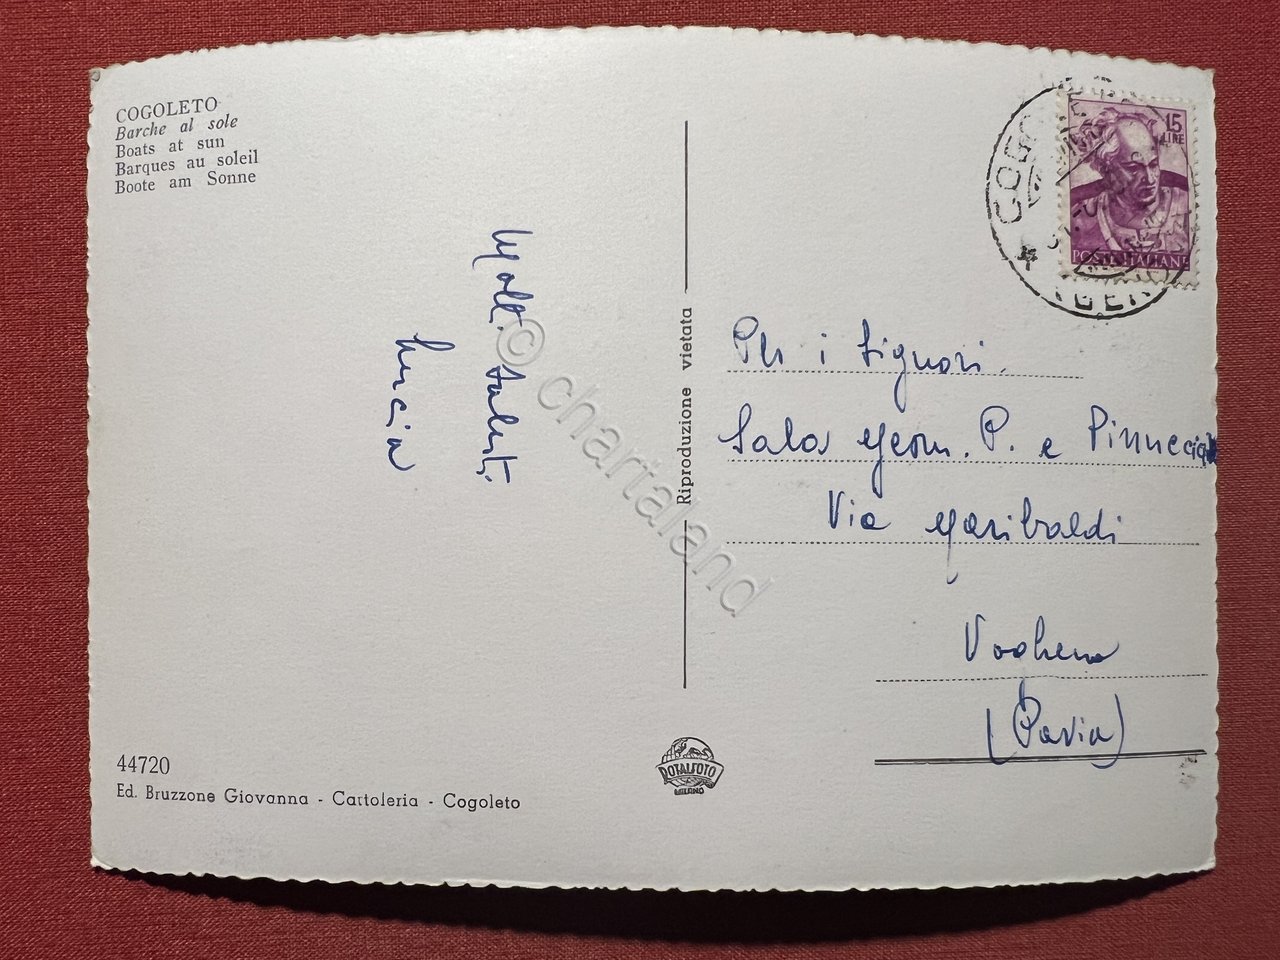 COGOLETO
Barche al sole
Boats at sun
Barques au soleil
Boote am Sonne
15
LIRE
POSTE ITALIANE
COGO
Molt. Saluti
Lucia
Riproduzione vietata
Per i Signori
Sala Geom. P. e Pinuccia
Via Garibaldi
Voghera
(Pavia)
44720
Ed. Bruzzone Giovanna - Cartoleria - Cogoleto
ROTALFOTO
MILANO
© chartaland